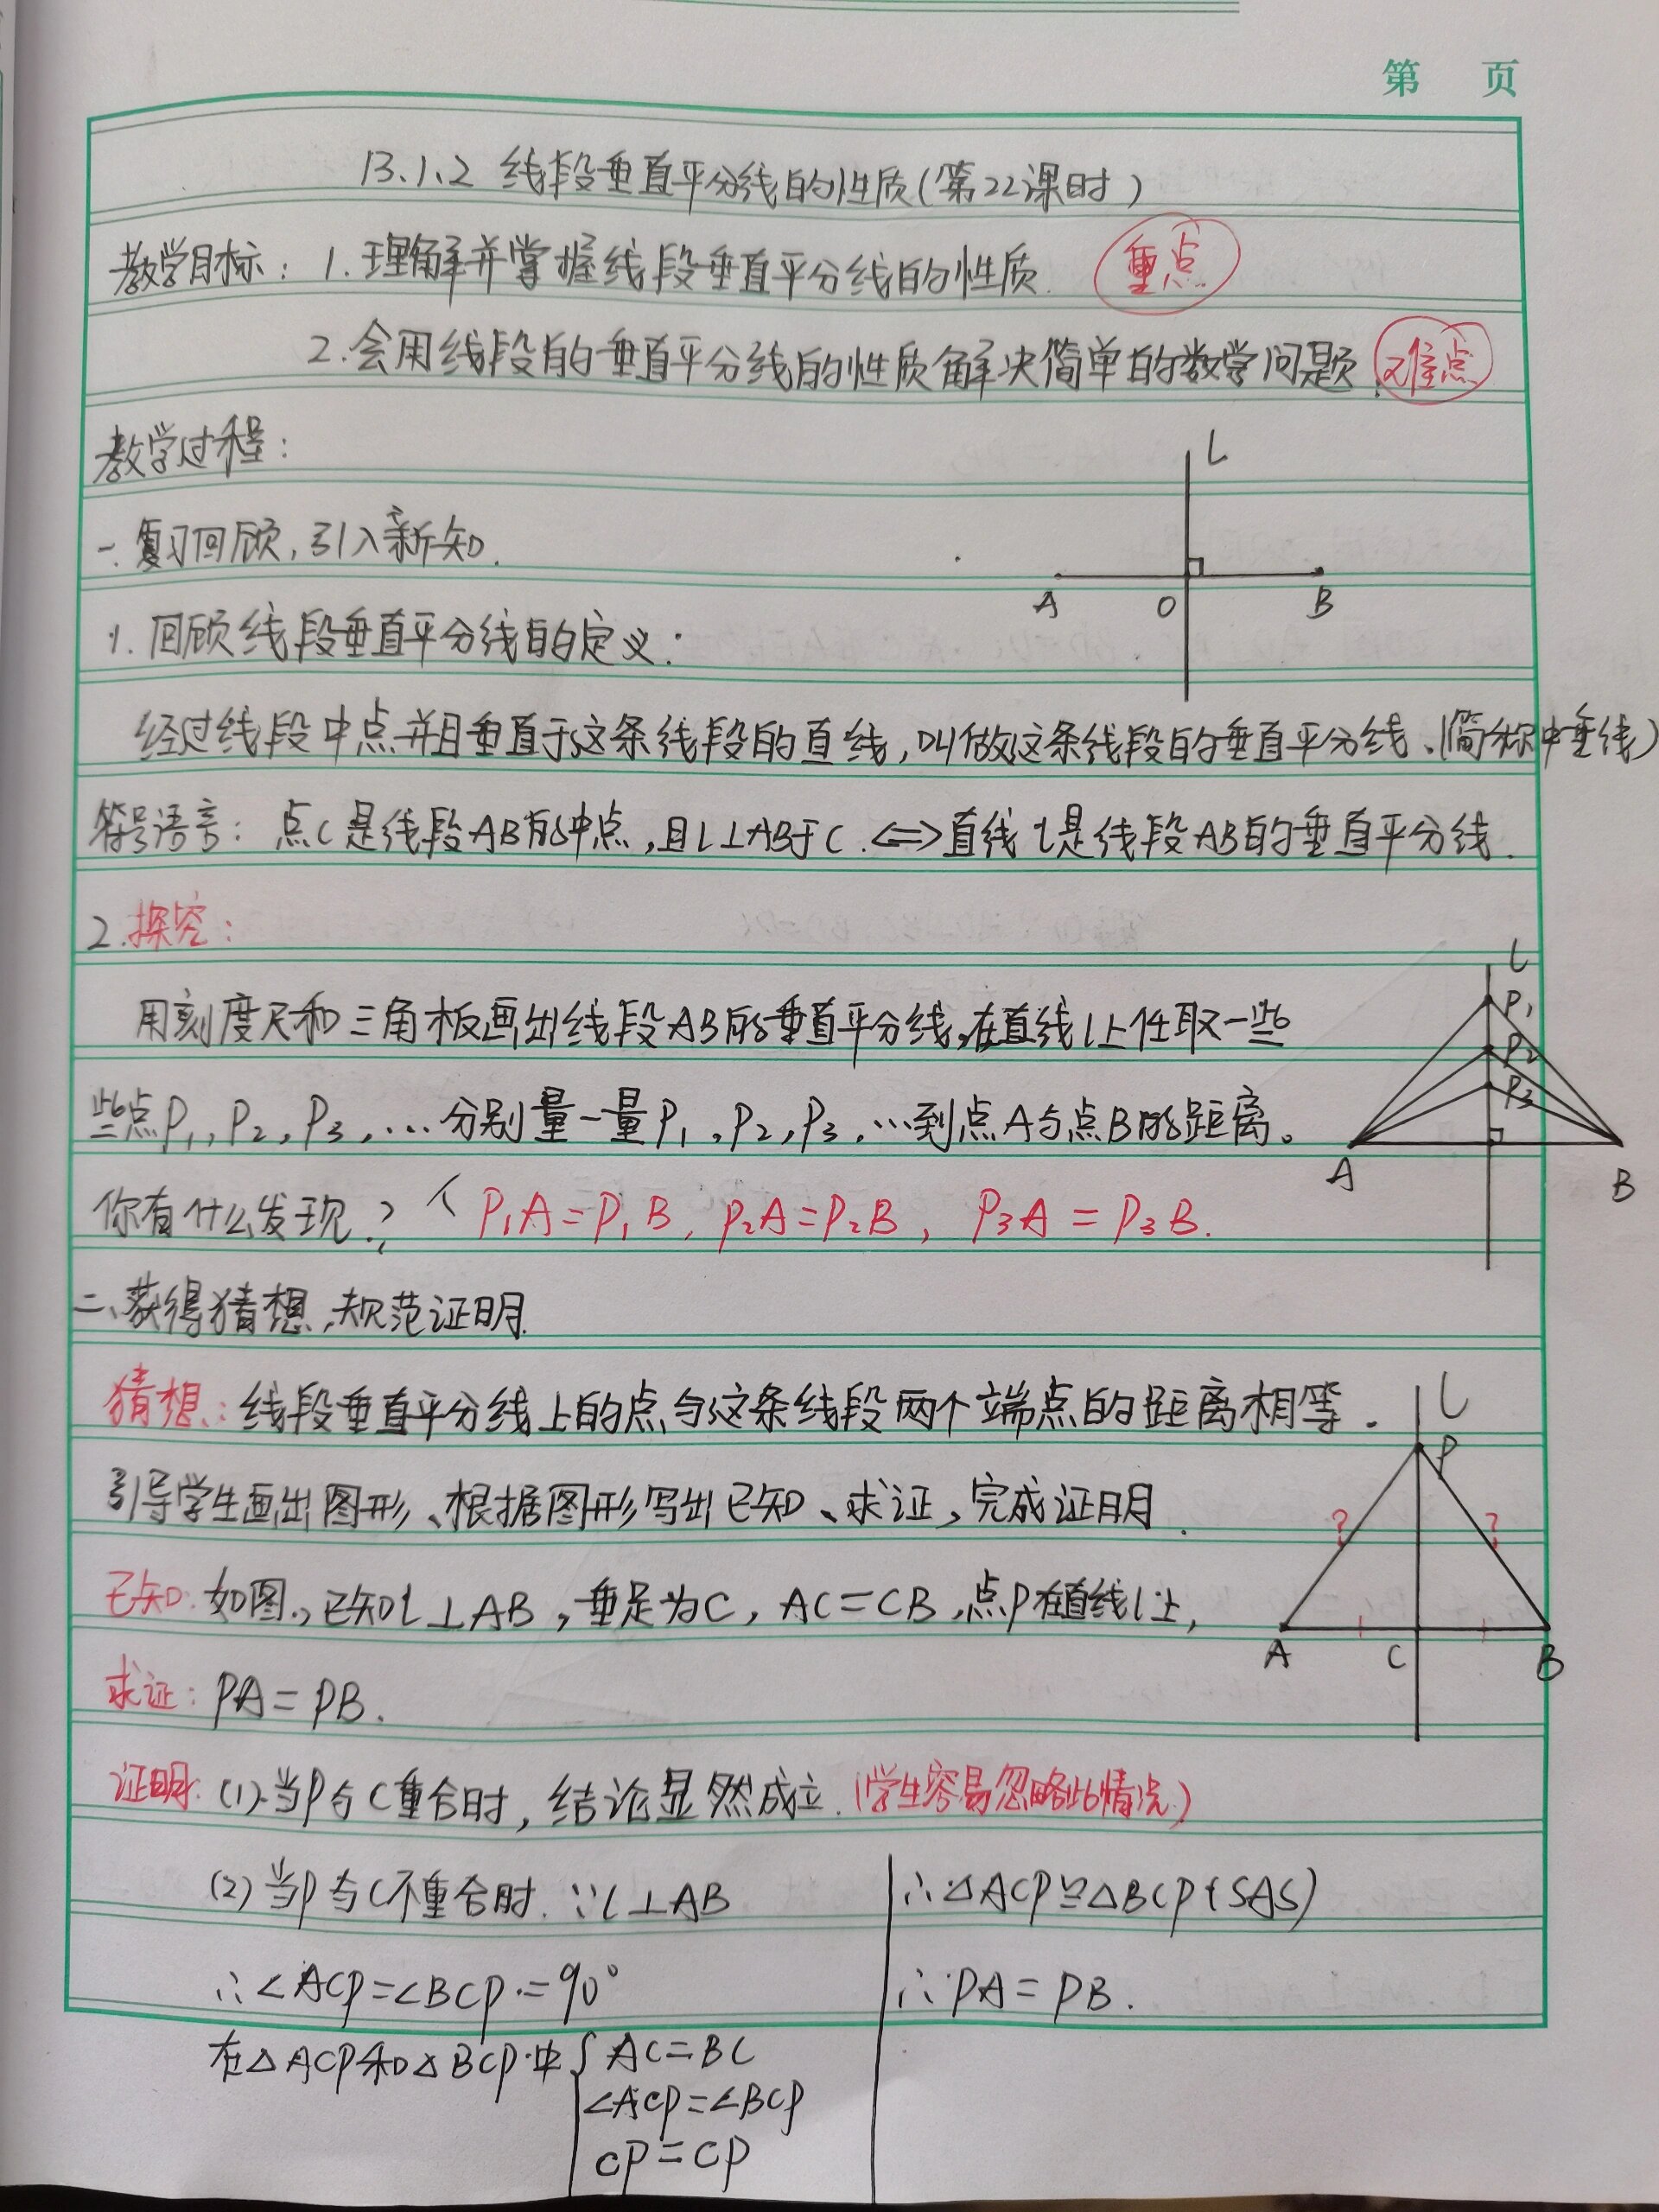 第 页
13.1.2 线段垂直平分线的性质(第22课时)
教学目标：1.理解并掌握线段垂直平分线的性质. 重点
2.会用线段的垂直平分线的性质解决简单的数学问题. 难点
教学过程：
L
一.复习回顾,引入新知.
A O B
1.回顾线段垂直平分线的定义：
经过线段中点并且垂直于这条线段的直线,叫做这条线段的垂直平分线.(简称中垂线)
符号语言：点C是线段AB的中点,且l⊥AB于C.⟺直线l是线段AB的垂直平分线.
2.探究：
l
P₁
P₂
P₃
用刻度尺和三角板画出线段AB的垂直平分线,在直线l上任取一些
些点P₁,P₂,P₃,…分别量一量P₁,P₂,P₃,…到点A与点B的距离。
A B
你有什么发现？ ( P₁A=P₁B, P₂A=P₂B, P₃A=P₃B.
二、获得猜想,规范证明.
猜想：线段垂直平分线上的点与这条线段两个端点的距离相等.
l
P
引导学生画出图形、根据图形写出已知、求证,完成证明.
? ?
已知:如图,已知l⊥AB,垂足为C, AC=CB,点P在直线l上,
A C B
求证：PA=PB.
证明:(1)当P与C重合时,结论显然成立.(学生容易忽略此情况.)
(2)当P与C不重合时.∵l⊥AB
∴∠ACP=∠BCP=90°
在△ACP和△BCP中{AC=BC
∠ACP=∠BCP
CP=CP
∴△ACP≌△BCP(SAS)
∴PA=PB.